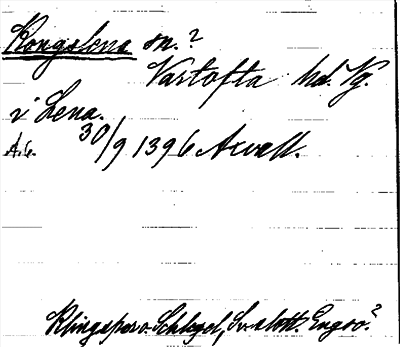 Kongslena sn.?
Vartofta hd. Vg.
i Lena.
A.6. 30/9 1396 Axvall.
Klingspor o. Schlegel, Sv. slott. Engsö?